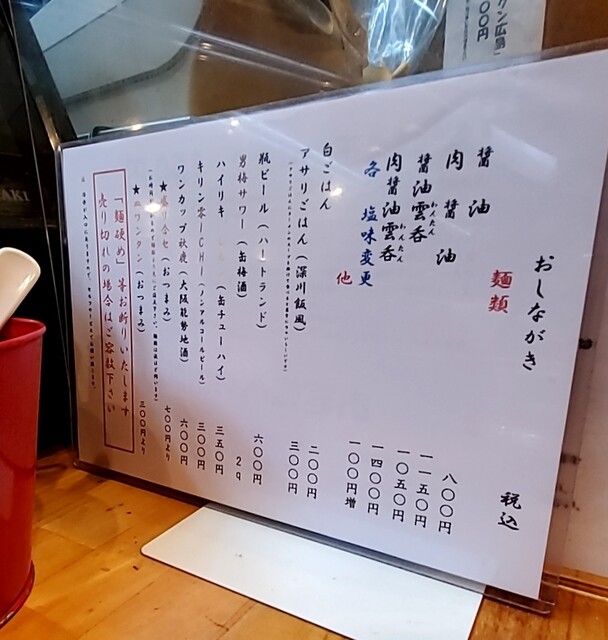 おしながき
税込
麺類
醤油
八〇〇円
肉醤油
一一五〇円
醤油雲呑
わんたん
一〇五〇円
肉醤油雲呑
わんたん
一四〇〇円
各 塩味変更
一〇〇円増
他
白ごはん
二〇〇円
アサリごはん(深川飯風)
三〇〇円
瓶ビール(ハートランド)
六〇〇円
男梅サワー(缶梅酒)
ハイリキ
(缶チューハイ)
三五〇円
キリン零ICHI(ノンアルコールビール)
三〇〇円
ワンカップ秋鹿(大阪能勢地酒)
六〇〇円
★盛り合せ(おつまみ)
七〇〇円より
★ワンタン(おつまみ)
三〇〇円より
「麺硬め」等お断りいたします
売り切れの場合はご容赦下さい